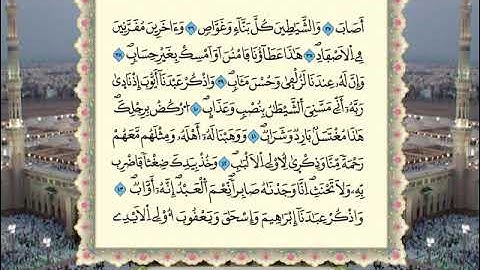 أَصَابَ ۝ وَالشَّيَٰطِينَ كُلَّ بَنَّآءٖ وَغَوَّاصٖ ۝ وَءَاخَرِينَ مُقَرَّنِينَ
فِي اِ۬لَاصْفَادِ ۝ هَٰذَا عَطَآؤُنَا فَامْنُنَ اَوَ اَمْسِكْ بِغَيْرِ حِسَابٖ ۝
وَإِنَّ لَهُۥ عِندَنَا لَزُلْفَيٰ وَحُسْنَ مَـَٔابٖ ۝ وَاذْكُرْ عَبْدَنَآ أَيُّوبَ إِذْ نَادَيٰ
رَبَّهُۥٓ أَنِّے مَسَّنِيَ اَ۬لشَّيْطَٰنُ بِنُصْبٖ وَعَذَابٍ ۝ اُ۟رْكُضْ بِرِجْلِكَ
هَٰذَا مُغْتَسَلُۢ بَارِدٞ وَشَرَابٞ ۝ وَوَهَبْنَا لَهُۥٓ أَهْلَهُۥ وَمِثْلَهُم مَّعَهُمْ
رَحْمَةٗ مِّنَّا وَذِكْر۪يٰ لِأُوْلِي اِ۬لَالْبَٰبِ ۝ وَخُذْ بِيَدِكَ ضِغْثاٗ فَاضْرِب
بِّهِۦ وَلَا تَحْنَثِ اِنَّا وَجَدْنَٰهُ صَابِراٗ نِّعْمَ اَ۬لْعَبْدُ إِنَّهُۥٓ أَوَّابٞ ۝
وَاذْكُرْ عِبَٰدَنَآ إِبْرَٰهِيمَ وَإِسْحَٰقَ وَيَعْقُوبَ أُوْلِي اِ۬لَايْدِے